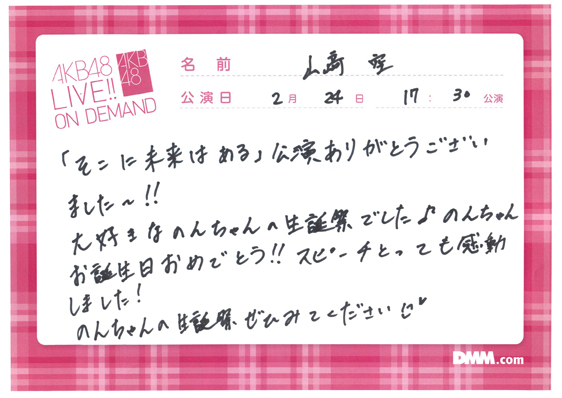 AKB48
LIVE!!
ON DEMAND
AKB
48
名前 山﨑 空
公演日 2月 24日 17:30 公演
「そこに未来はある」公演ありがとうござい
ました〜!!
大好きなのんちゃんの生誕祭でした♪のんちゃん
お誕生日おめでとう!! スピーチとっても感動
しました!
のんちゃんの生誕祭ぜひみてください
DMM.com